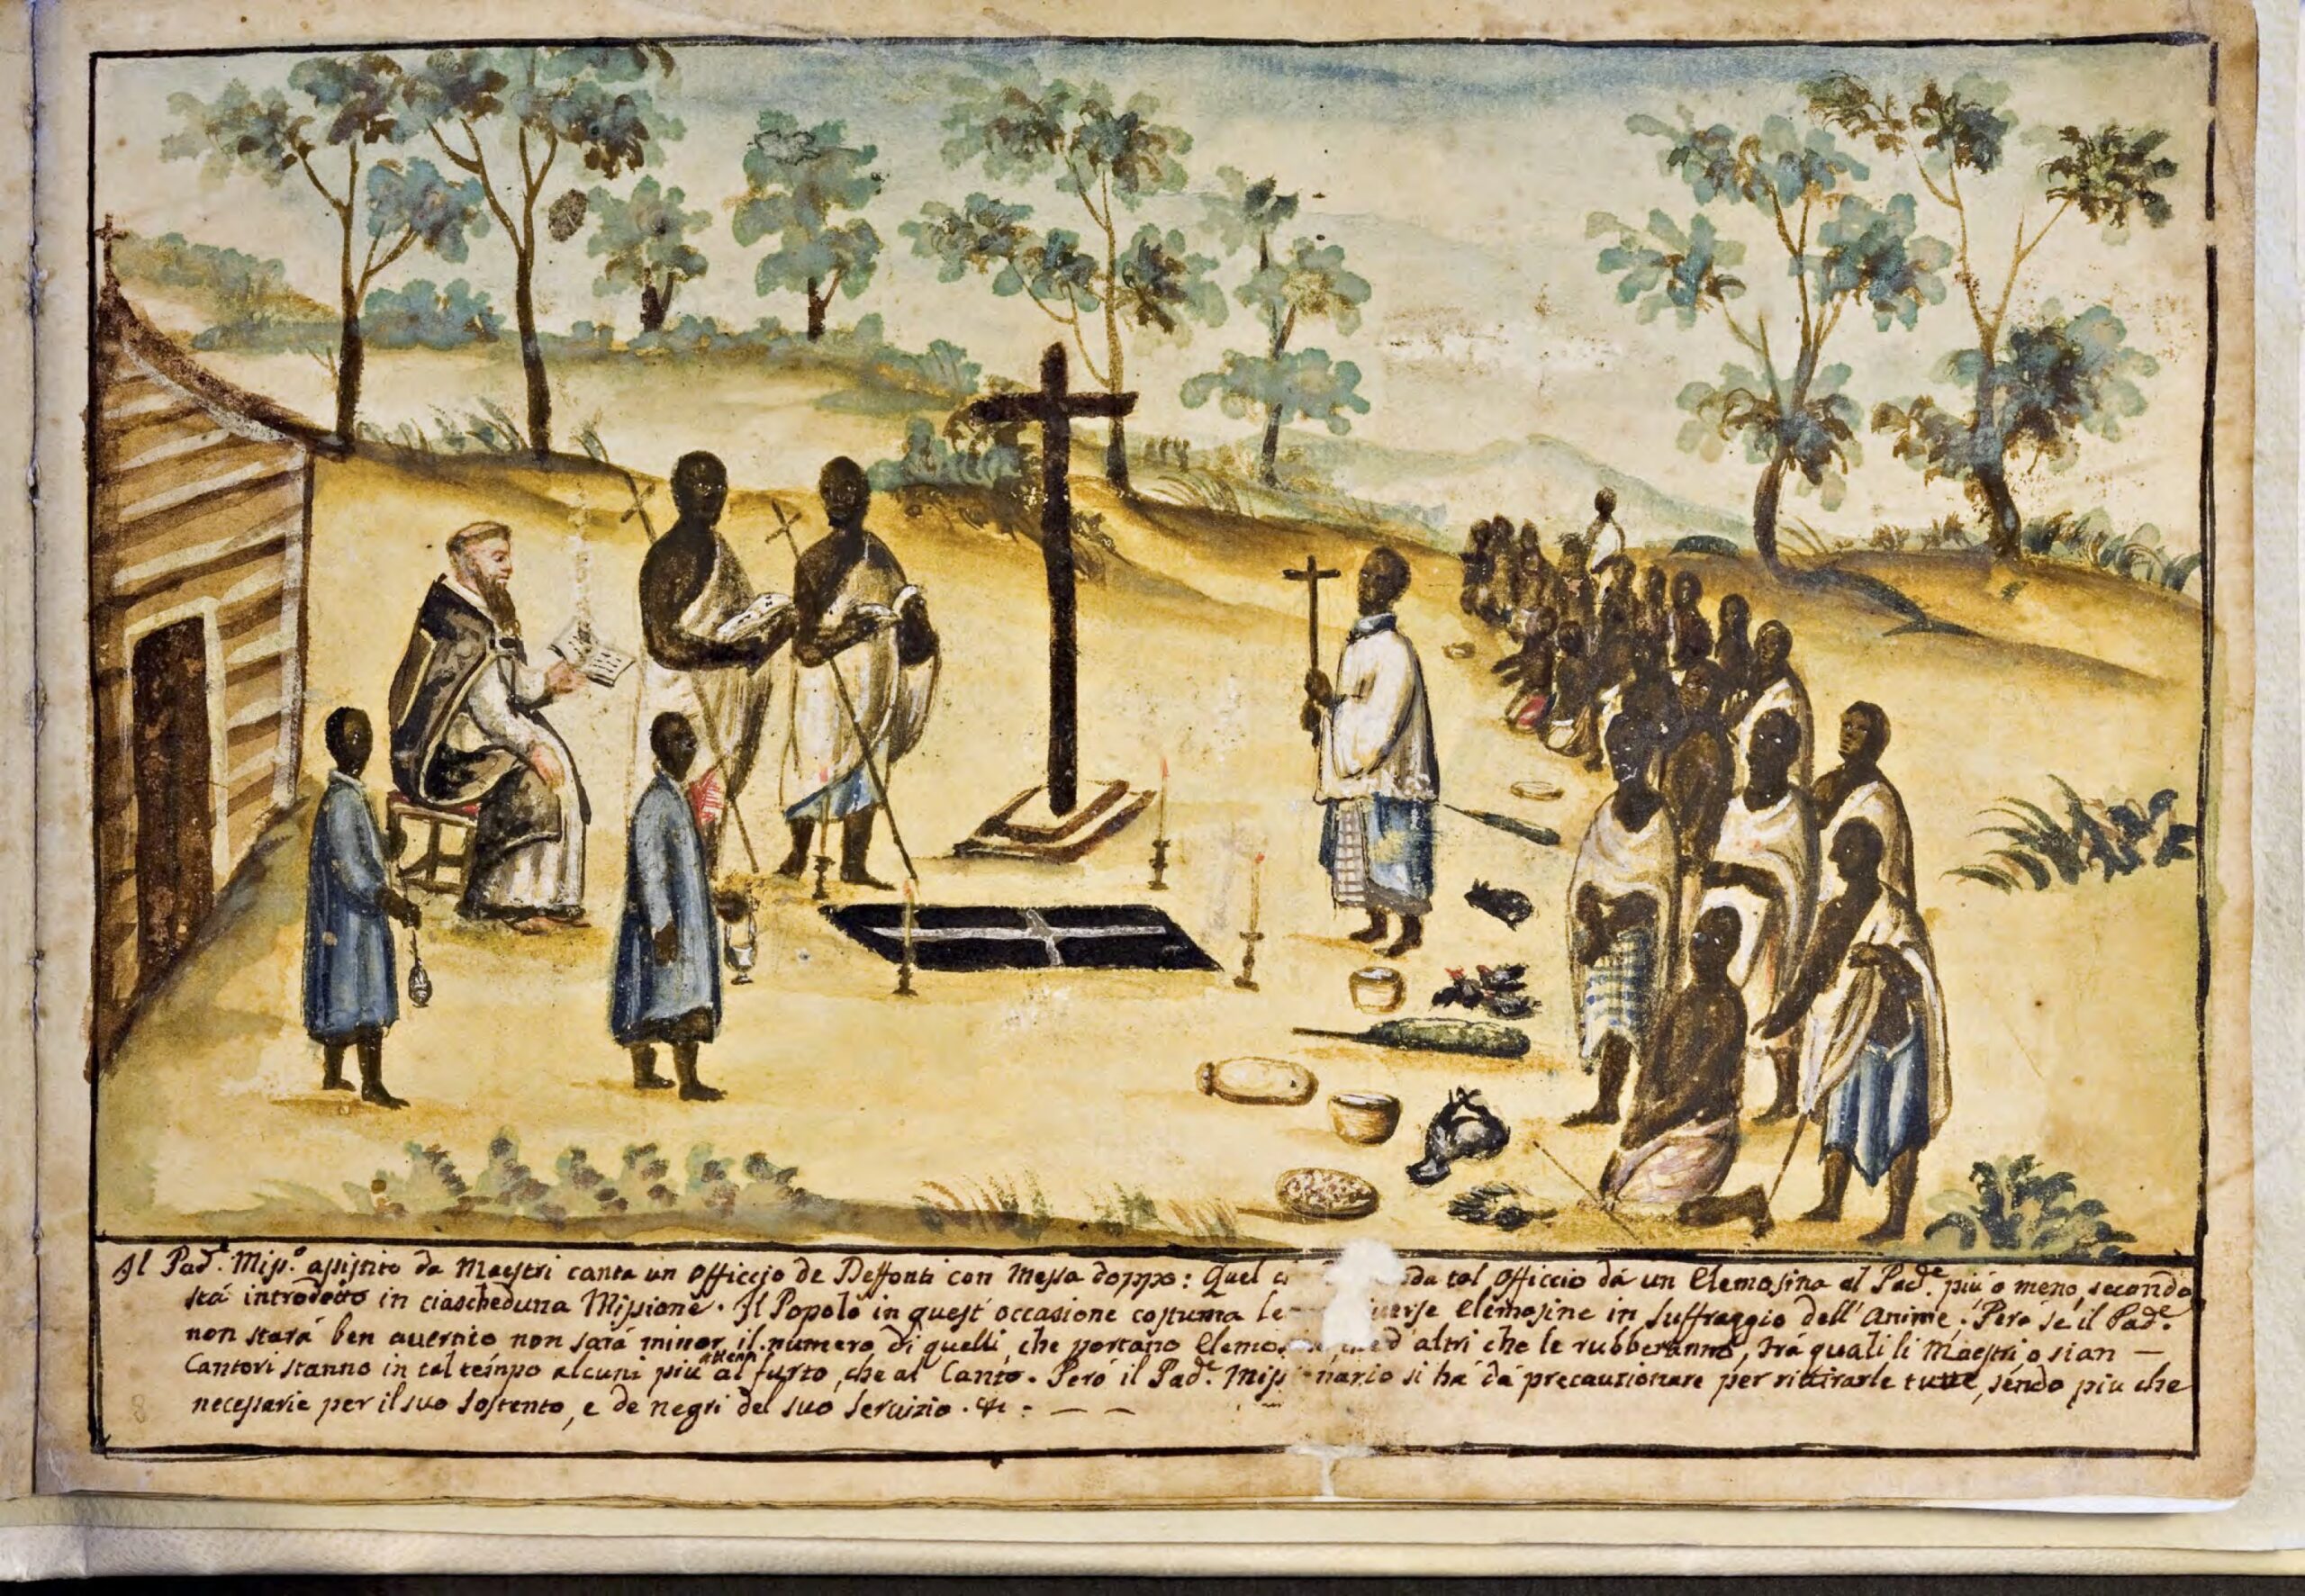 Il Pad.e Miss.o assistito da Maestri canta un Officcio de Deffonti con Messa doppo: Quel da tal Officcio dà un Elemosina al Pad.e più o meno, secondo
stà introdotto in ciascheduna Missione. Il Popolo in quest' occasione costuma Elemosine in suffraggio dell' Anime. Però se il Pad.e
non starà ben avertito non sarà minor il numero di quelli, che portano d' altri che le rubberanno, trà quali li Maestri, o sian —
Cantori stanno in tal tempo alcuni più attenti al furto, che al Canto. Però il Pad.e Missionario si hà dà precautionare per ritirarle tutte, sendo più che
necessarie per il suo sostento, e de negri del suo servizio. &c: — —
8